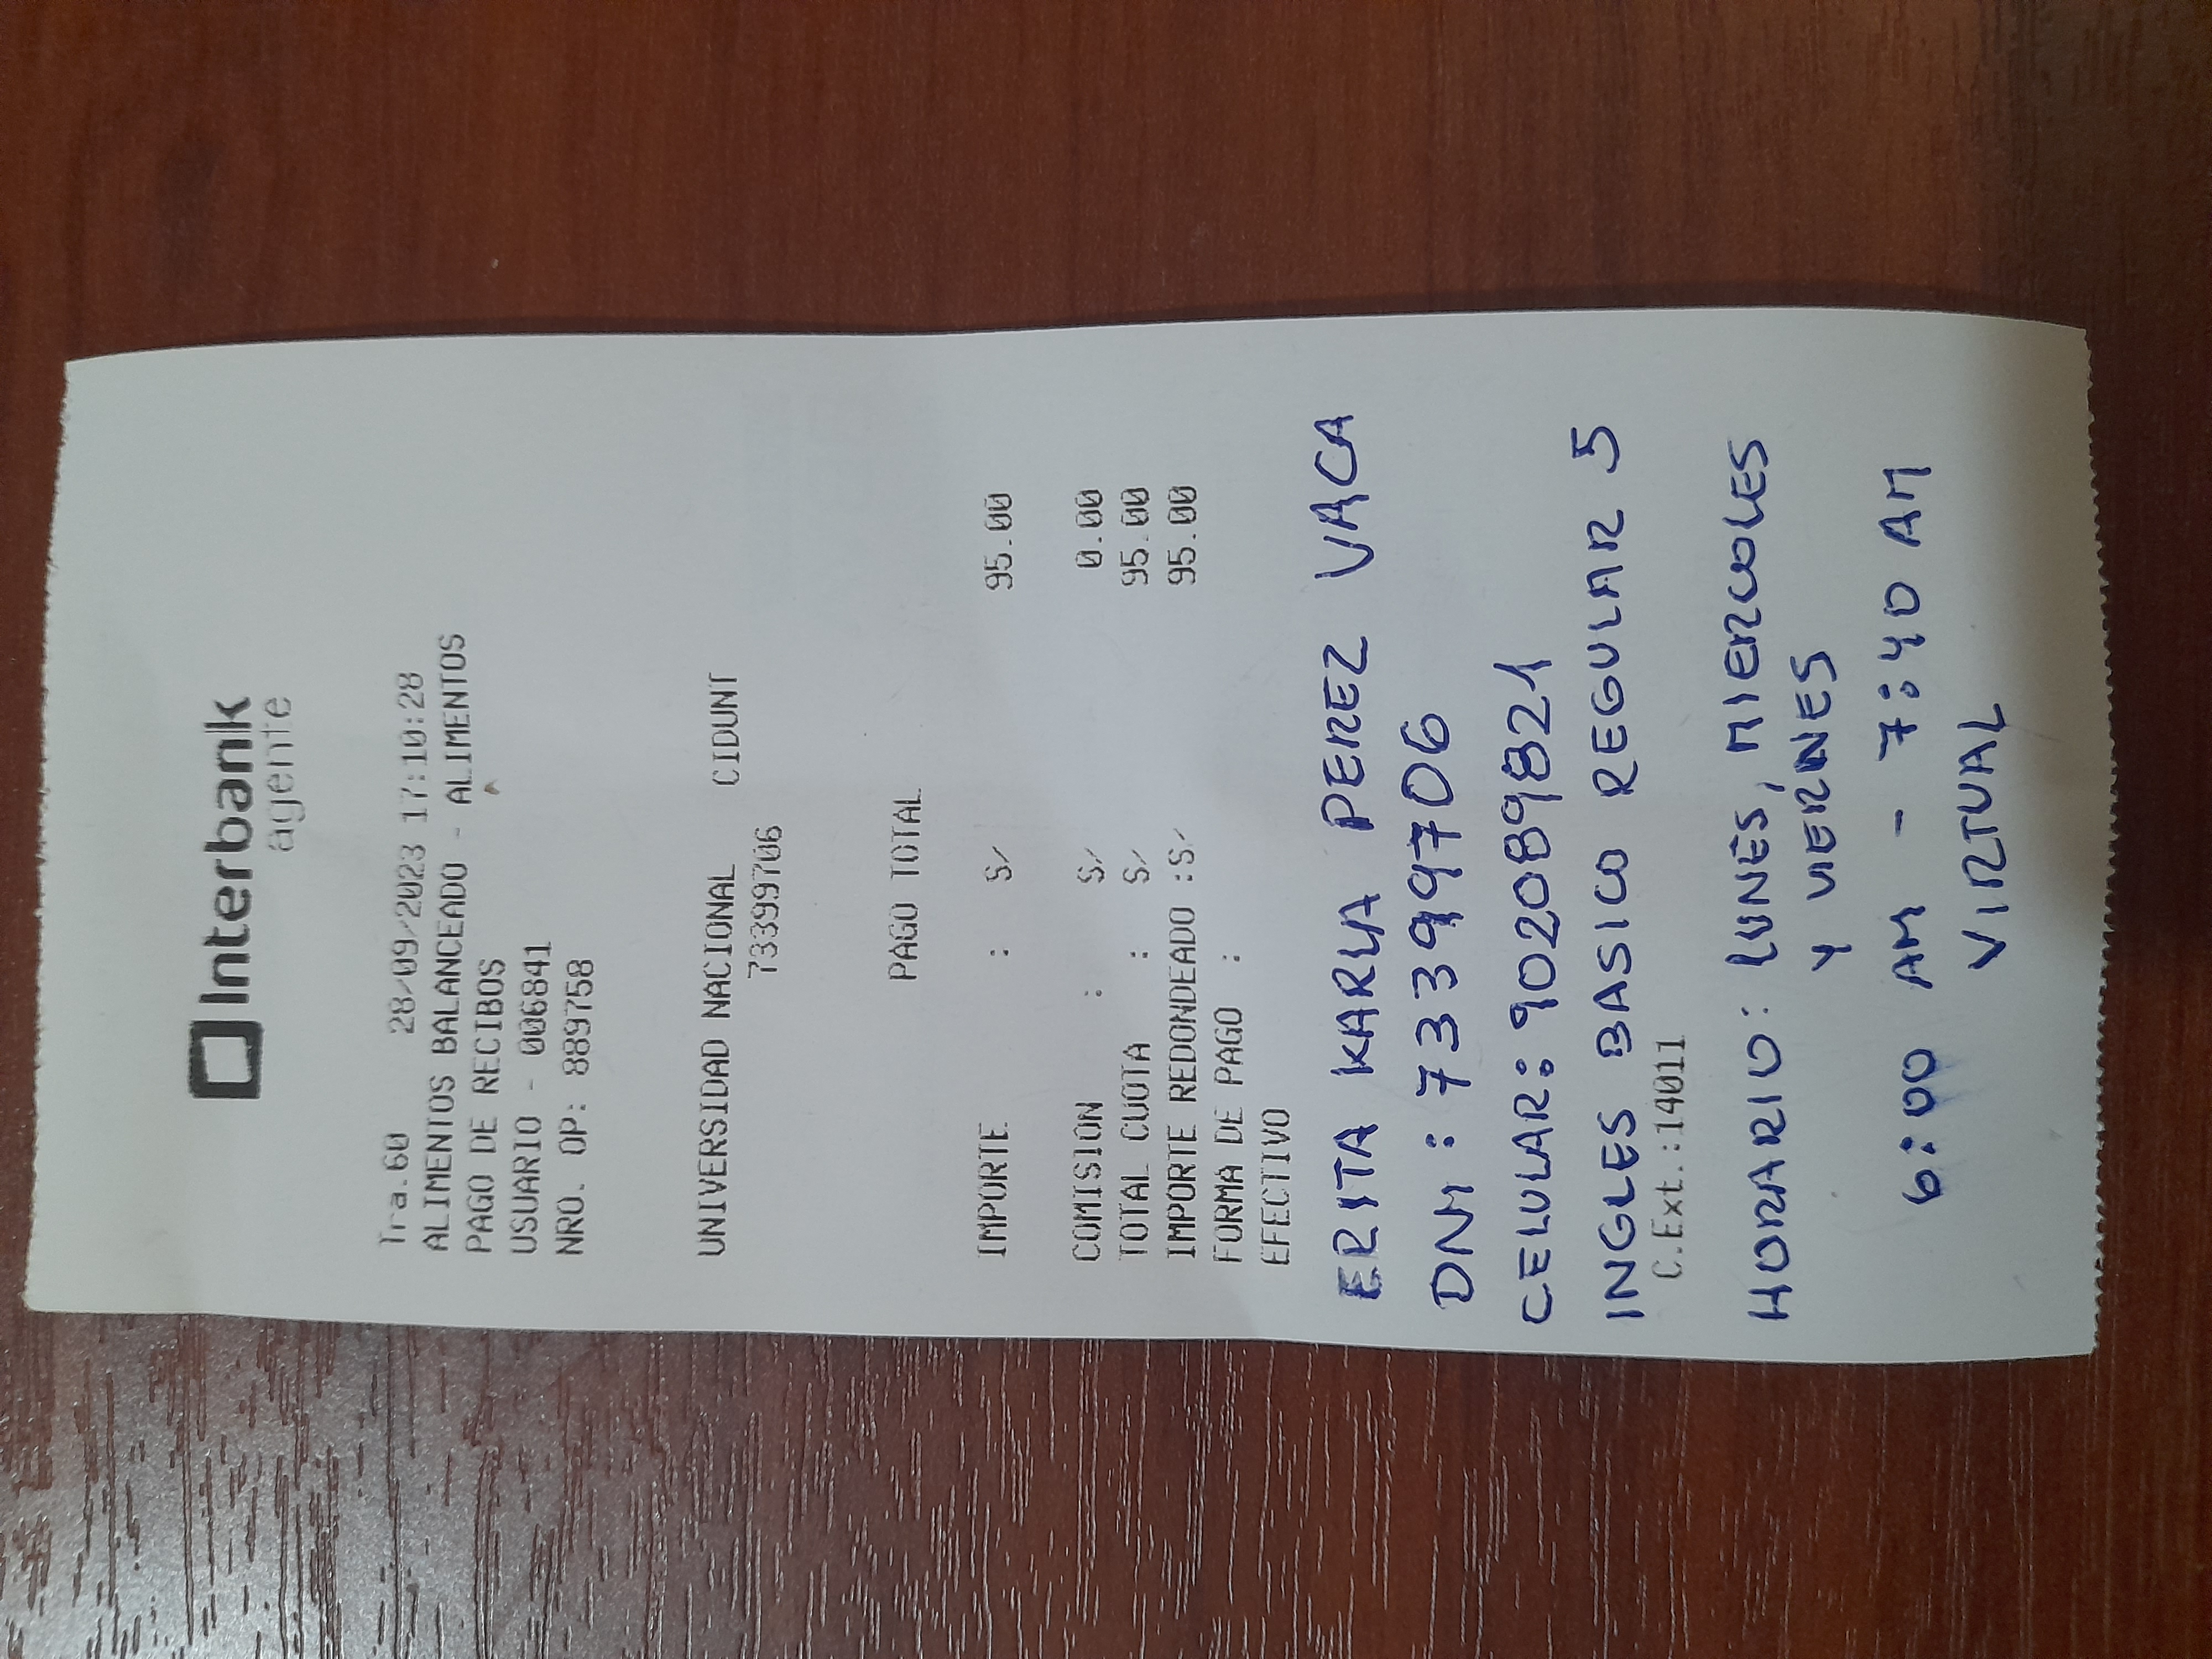 Interbank
agente
Tra.60 28/09/2023 17:10:28
ALIMENTOS BALANCEADO - ALIMENTOS
PAGO DE RECIBOS
USUARIO - 006841
NRO. OP: 889758
UNIVERSIDAD NACIONAL CIDUNT
73399706
PAGO TOTAL
IMPORTE : S/ 95.00
COMISION : S/ 0.00
TOTAL CUOTA : S/ 95.00
IMPORTE REDONDEADO :S/ 95.00
FORMA DE PAGO :
EFECTIVO
ERITA KARLA PEREZ VACA
DNI : 73399706
CELULAR: 902089821
INGLES BASICO REGULAR 5
C.Ext.:14011
HORARIO: LUNES, MIERCOLES
Y VIERNES
6:00 AM - 7:40 AM
VIRTUAL